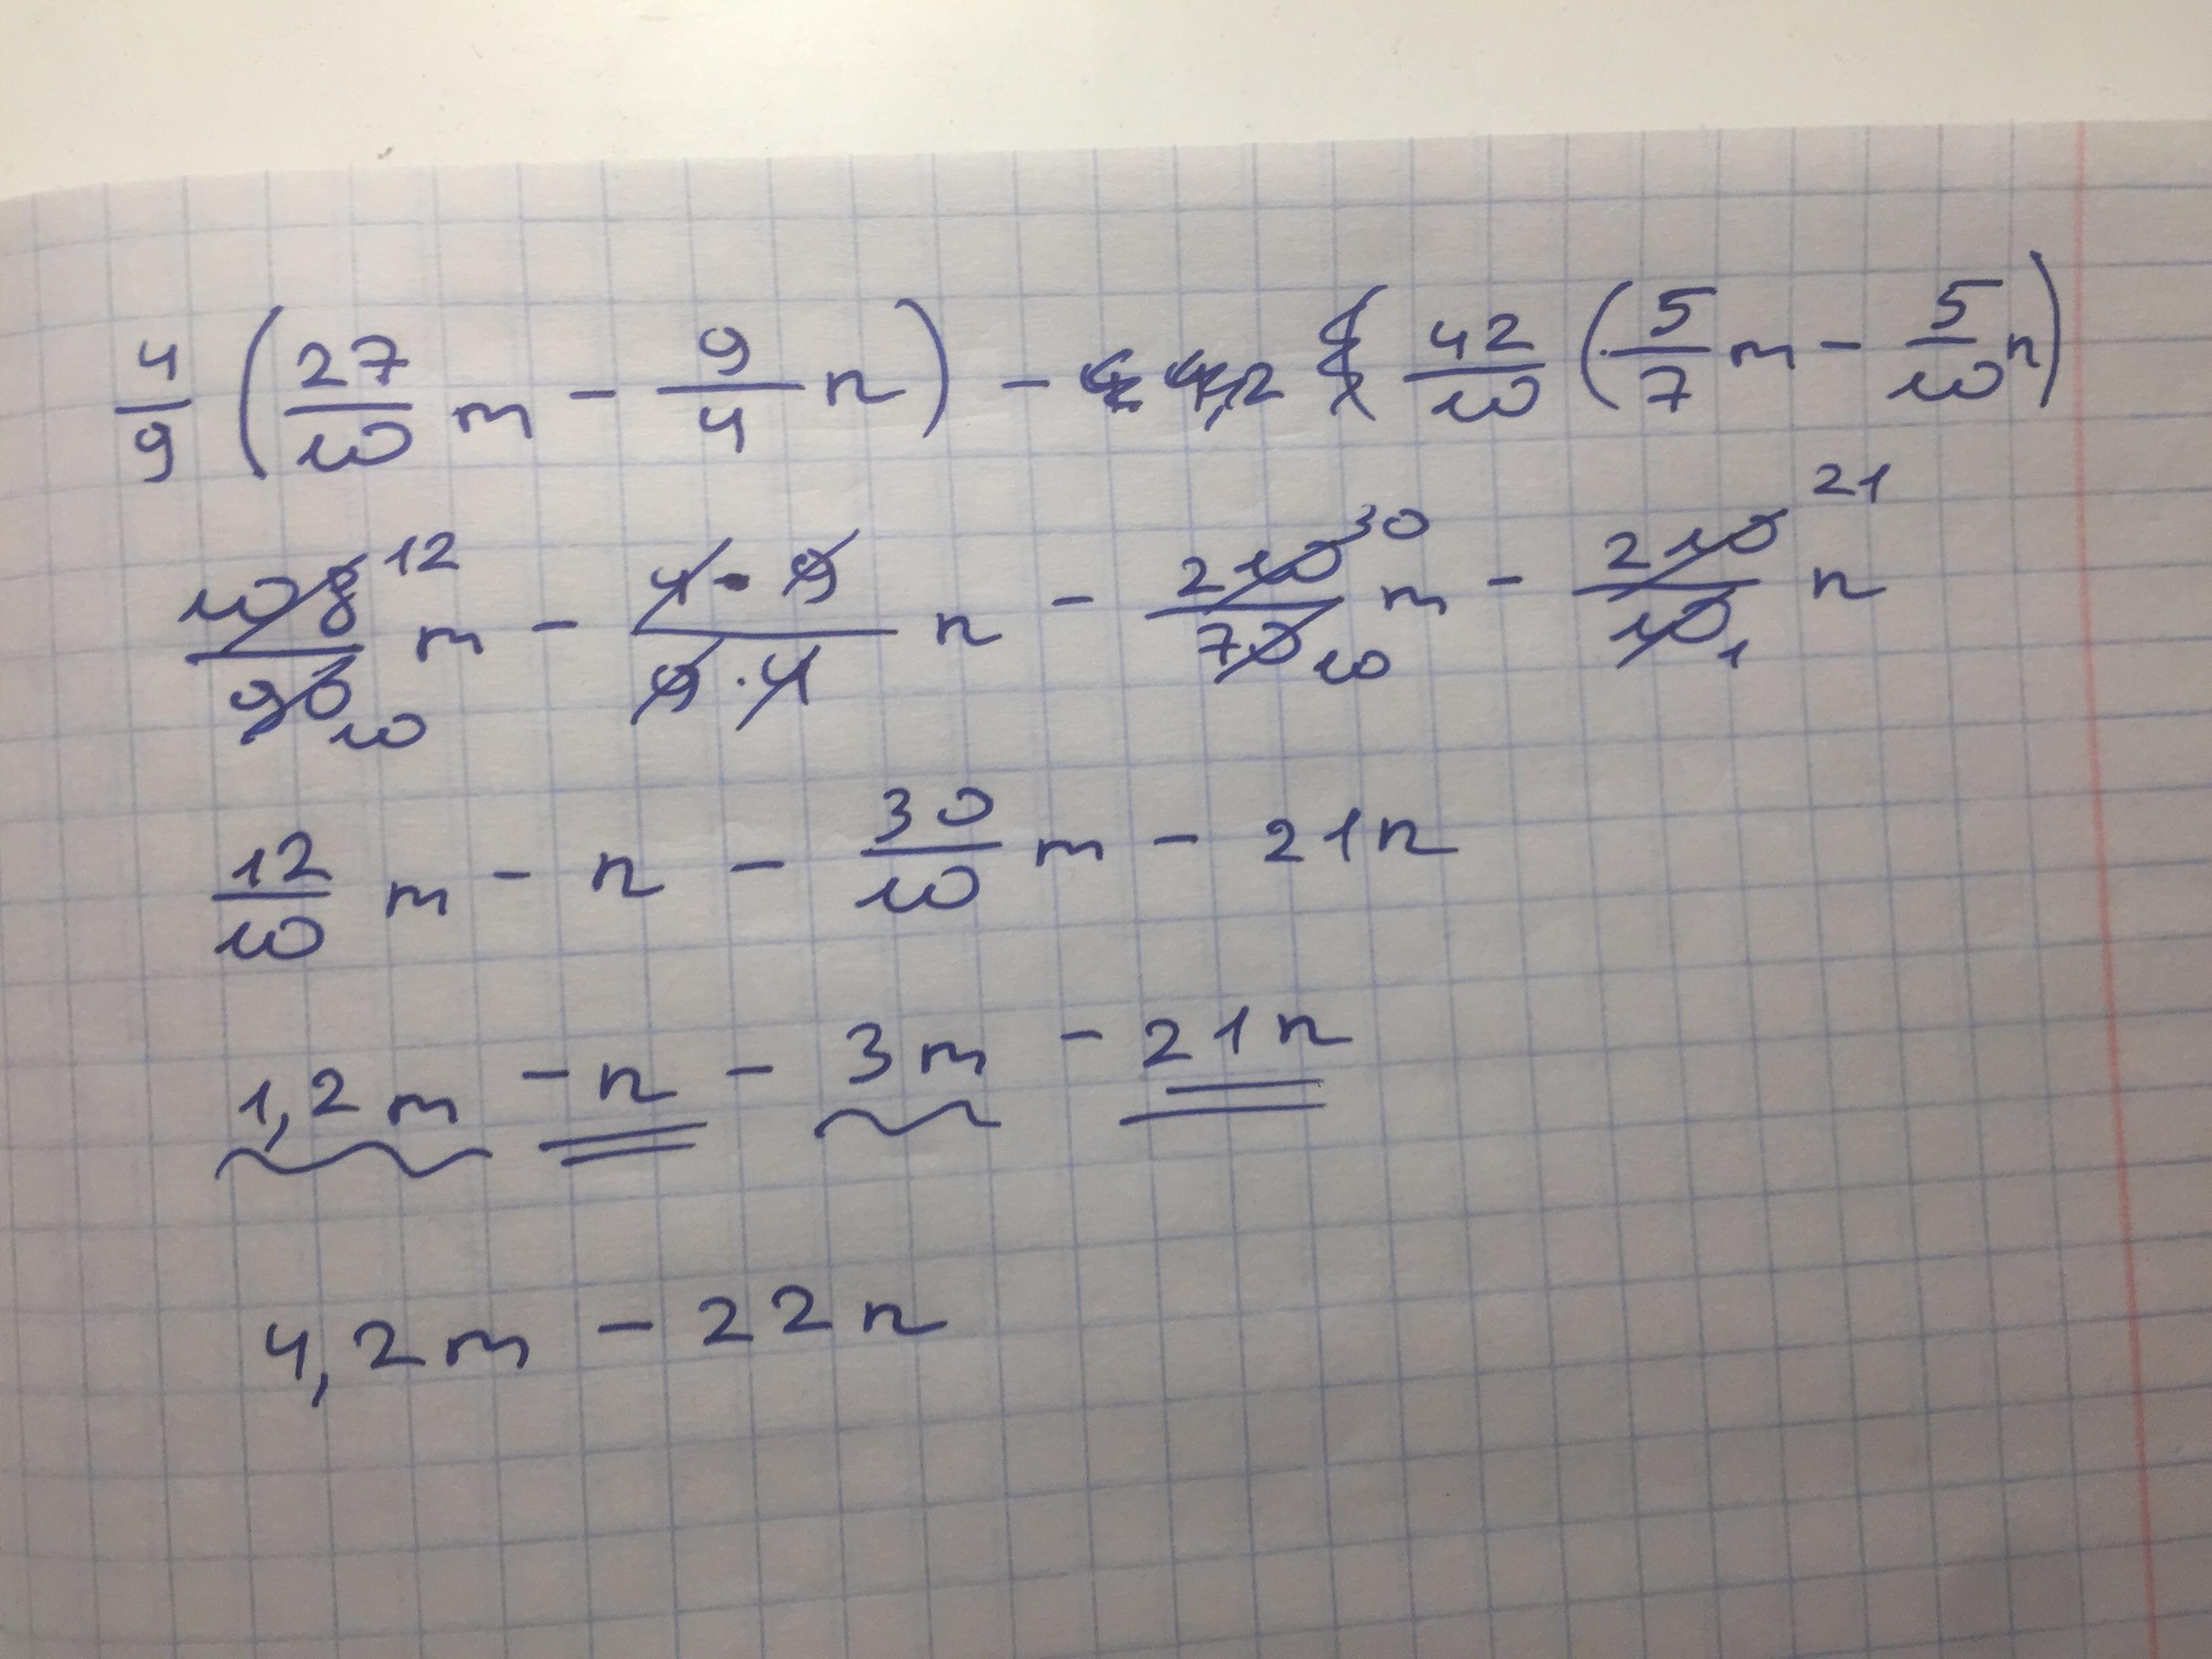 4/9 (27/10 m - 9/4 n) - 4,2 42/10 (5/7 m - 5/10 n)
108/90 12/10 m - 4·9/9·4 n - 210/70 30/10 m - 210/10 21/1 n
12/10 m - n - 30/10 m - 21n
1,2m - n - 3m - 21n
4,2m - 22n